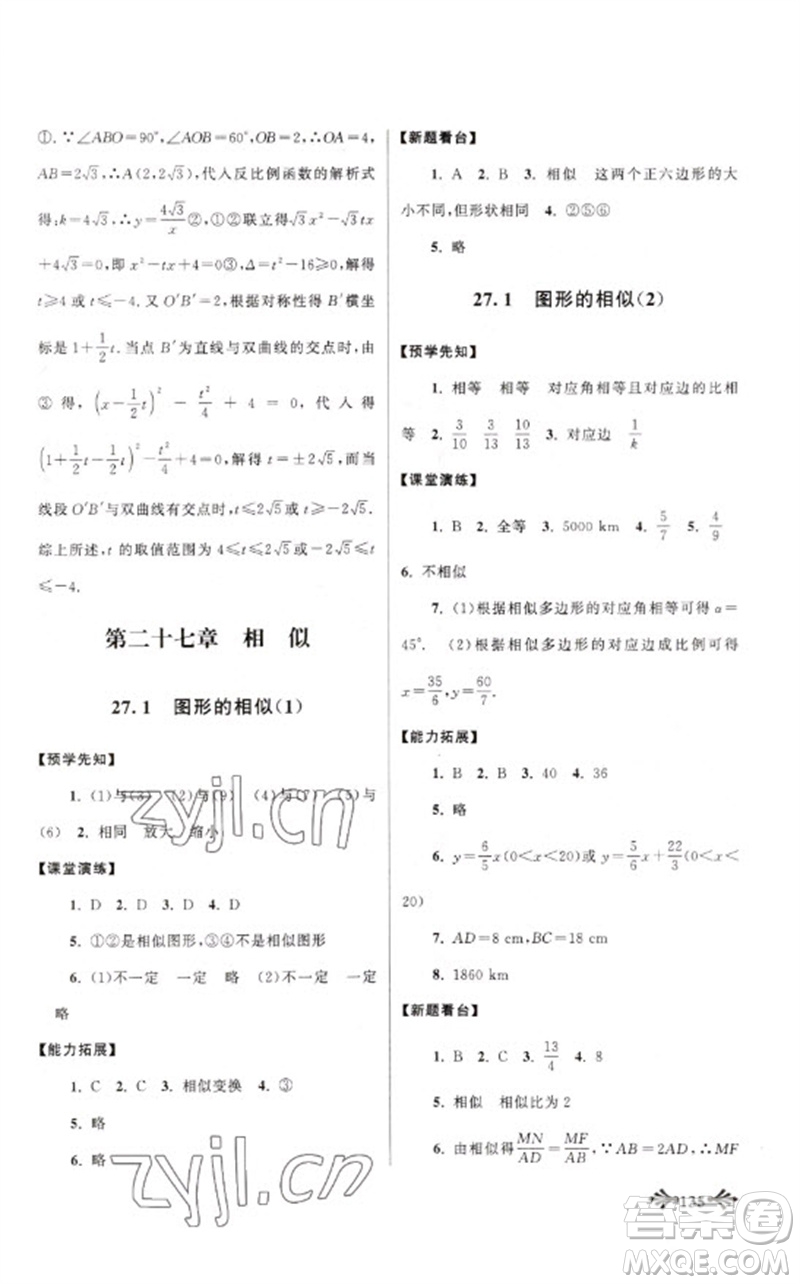 ①.∵∠ABO=90°,∠AOB=60°,OB=2,∴OA=4,
AB=2√3,∴A(2,2√3),代入反比例函数的解析式
得:k=4√3,∴y=4√3/x②,①②联立得√3x²-√3tx
+4√3=0,即x²-tx+4=0③,Δ=t²-16≥0,解得
t≥4或t≤-4.又O′B′=2,根据对称性得B′横坐
标是1+1/2t.当点B′为直线与双曲线的交点时,由
③得,(x-1/2t)²-t²/4+4=0,代入得
(1+1/2t-1/2t)²-t²/4+4=0,解得t=±2√5,当
线段O′B′与双曲线有交点时,t≤2√5或t≥-2√5.
综上所述,t的取值范围为4≤t≤2√5或-2√5≤t
≤-4.
第二十七章 相 似
27.1 图形的相似(1)
【预学先知】
1. (1)与(3) (2)与(9) (4)与(7) (5)与
(6) 2. 相同 放大 缩小
【课堂演练】
1. D 2. D 3. D 4. D
5. ①②是相似图形,③④不是相似图形
6. (1)不一定 一定 略 (2)不一定 一定
略
【能力拓展】
1. C 2. C 3. 相似变换 4. ③
5. 略
6. 略
【新题看台】
1. A 2. B 3. 相似 这两个正六边形的大
小不同,但形状相同 4. ②⑤⑥
5. 略
27.1 图形的相似(2)
【预学先知】
1. 相等 相等 对应角相等且对应边的比相
等 2. 3/10 3/13 10/13 3. 对应边 1/k
【课堂演练】
1. B 2. 全等 3. 5000 km 4. 5/7 5. 4/9
6. 不相似
7. (1)根据相似多边形的对应角相等可得α=
45°. (2)根据相似多边形的对应边成比例可得
x=35/6,y=60/7.
【能力拓展】
1. B 2. B 3. 40 4. 36
5. 略
6. y=6/5x(0<x<20)或y=5/6x+22/3(0<x<
20)
7. AD=8 cm,BC=18 cm
8. 1860 km
【新题看台】
1. B 2. C 3. 13/4 4. 8
5. 相似 相似比为2
6. 由相似得MN/AD=MF/AB,∵AB=2AD,∴MF
135
zyjl.cn
zyjl.cn
答案圈
MXQE.COM